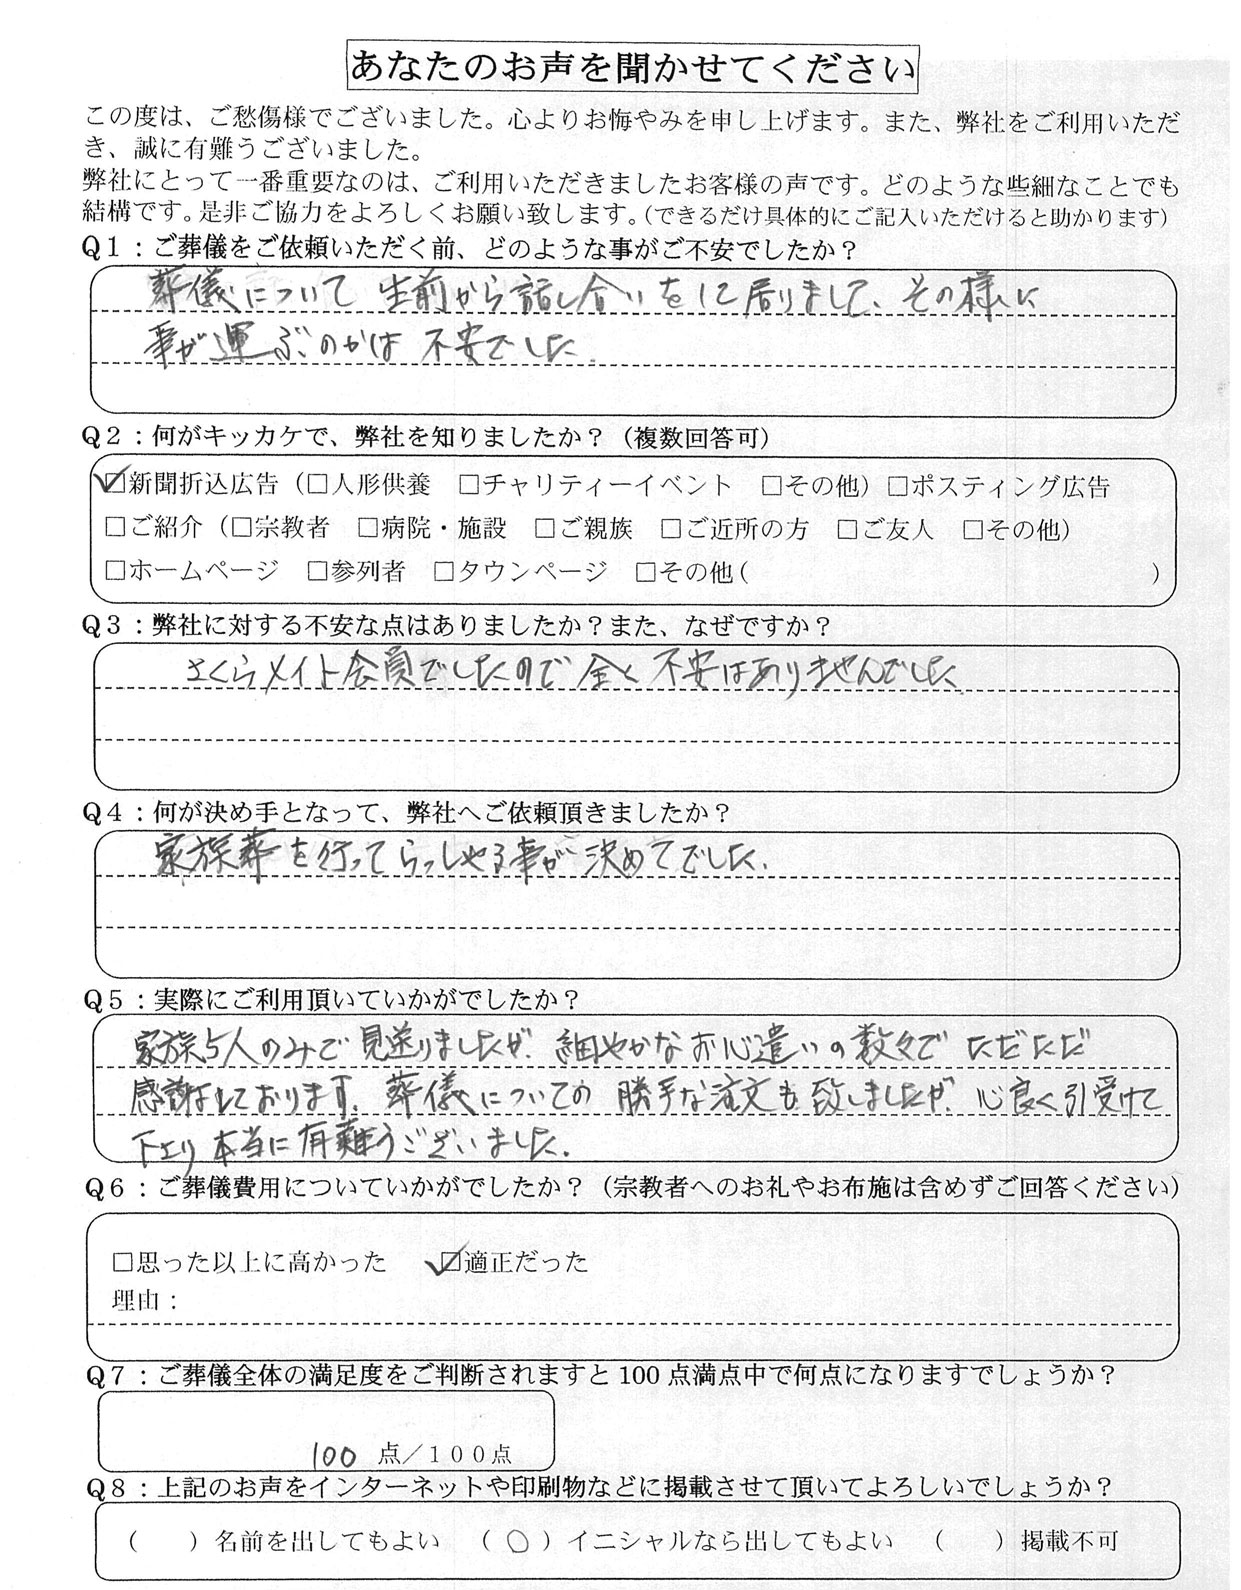 あなたのお声を聞かせてください
この度は、ご愁傷様でございました。心よりお悔やみを申し上げます。また、弊社をご利用いただ
き、誠に有難うございました。
弊社にとって一番重要なのは、ご利用いただきましたお客様の声です。どのような些細なことでも
結構です。是非ご協力をよろしくお願い致します。（できるだけ具体的にご記入いただけると助かります）
Ｑ１：ご葬儀をご依頼いただく前、どのような事がご不安でしたか？
葬儀について 生前から話し合いをして居りまして、その様に
事が運ぶのかは 不安でした。
Ｑ２：何がキッカケで、弊社を知りましたか？（複数回答可）
☑新聞折込広告（□人形供養　□チャリティーイベント　□その他）□ポスティング広告
□ご紹介（□宗教者　□病院・施設　□ご親族　□ご近所の方　□ご友人　□その他）
□ホームページ　□参列者　□タウンページ　□その他（　　　　　　　　　　　　　　　　）
Ｑ３：弊社に対する不安な点はありましたか？また、なぜですか？
さくらメイト会員でしたので 全く 不安はありませんでした
Ｑ４：何が決め手となって、弊社へご依頼頂きましたか？
家族葬を行ってらっしゃる事が 決めてでした。
Ｑ５：実際にご利用頂いていかがでしたか？
家族５人のみで 見送りましたが、細やかなお心遣いの数々で ただただ
感謝しております。葬儀についての 勝手な注文も 致しましたが、心良く引受けて
下さり 本当に 有難うございました。
Ｑ６：ご葬儀費用についていかがでしたか？（宗教者へのお礼やお布施は含めずご回答ください）
□思った以上に高かった　☑適正だった
理由：
Ｑ７：ご葬儀全体の満足度をご判断されますと 100 点満点中で何点になりますでしょうか？
100 点／１００点
Ｑ８：上記のお声をインターネットや印刷物などに掲載させて頂いてよろしいでしょうか？
（　　）名前を出してもよい　（ ○ ）イニシャルなら出してもよい　（　　）掲載不可